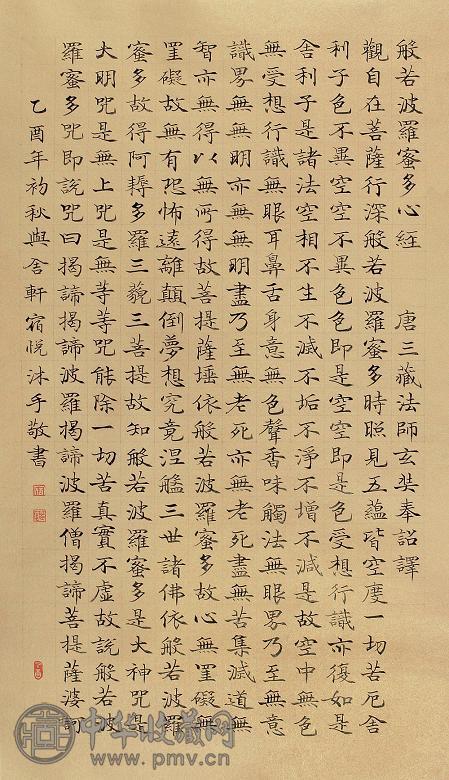 般若波羅蜜多心經 唐三藏法師玄奘奉詔譯
觀自在菩薩行深般若波羅蜜多時照見五蘊皆空度一切苦厄舍
利子色不異空空不異色色即是空空即是色受想行識亦復如是
舍利子是諸法空相不生不滅不垢不淨不增不減是故空中無色
無受想行識無眼耳鼻舌身意無色聲香味觸法無眼界乃至無意
識界無無明亦無無明盡乃至無老死亦無老死盡無苦集滅道無
智亦無得以無所得故菩提薩埵依般若波羅蜜多故心無罣礙無
罣礙故無有恐怖遠離顛倒夢想究竟涅槃三世諸佛依般若波羅
蜜多故得阿耨多羅三藐三菩提故知般若波羅蜜多是大神咒是
大明咒是無上咒是無等等咒能除一切苦真實不虛故說般若波
羅蜜多咒即說咒曰揭諦揭諦波羅揭諦波羅僧揭諦菩提薩婆訶
乙酉年初秋與舍軒宿悅沐手敬書
中华收藏网
www.pmv.cn